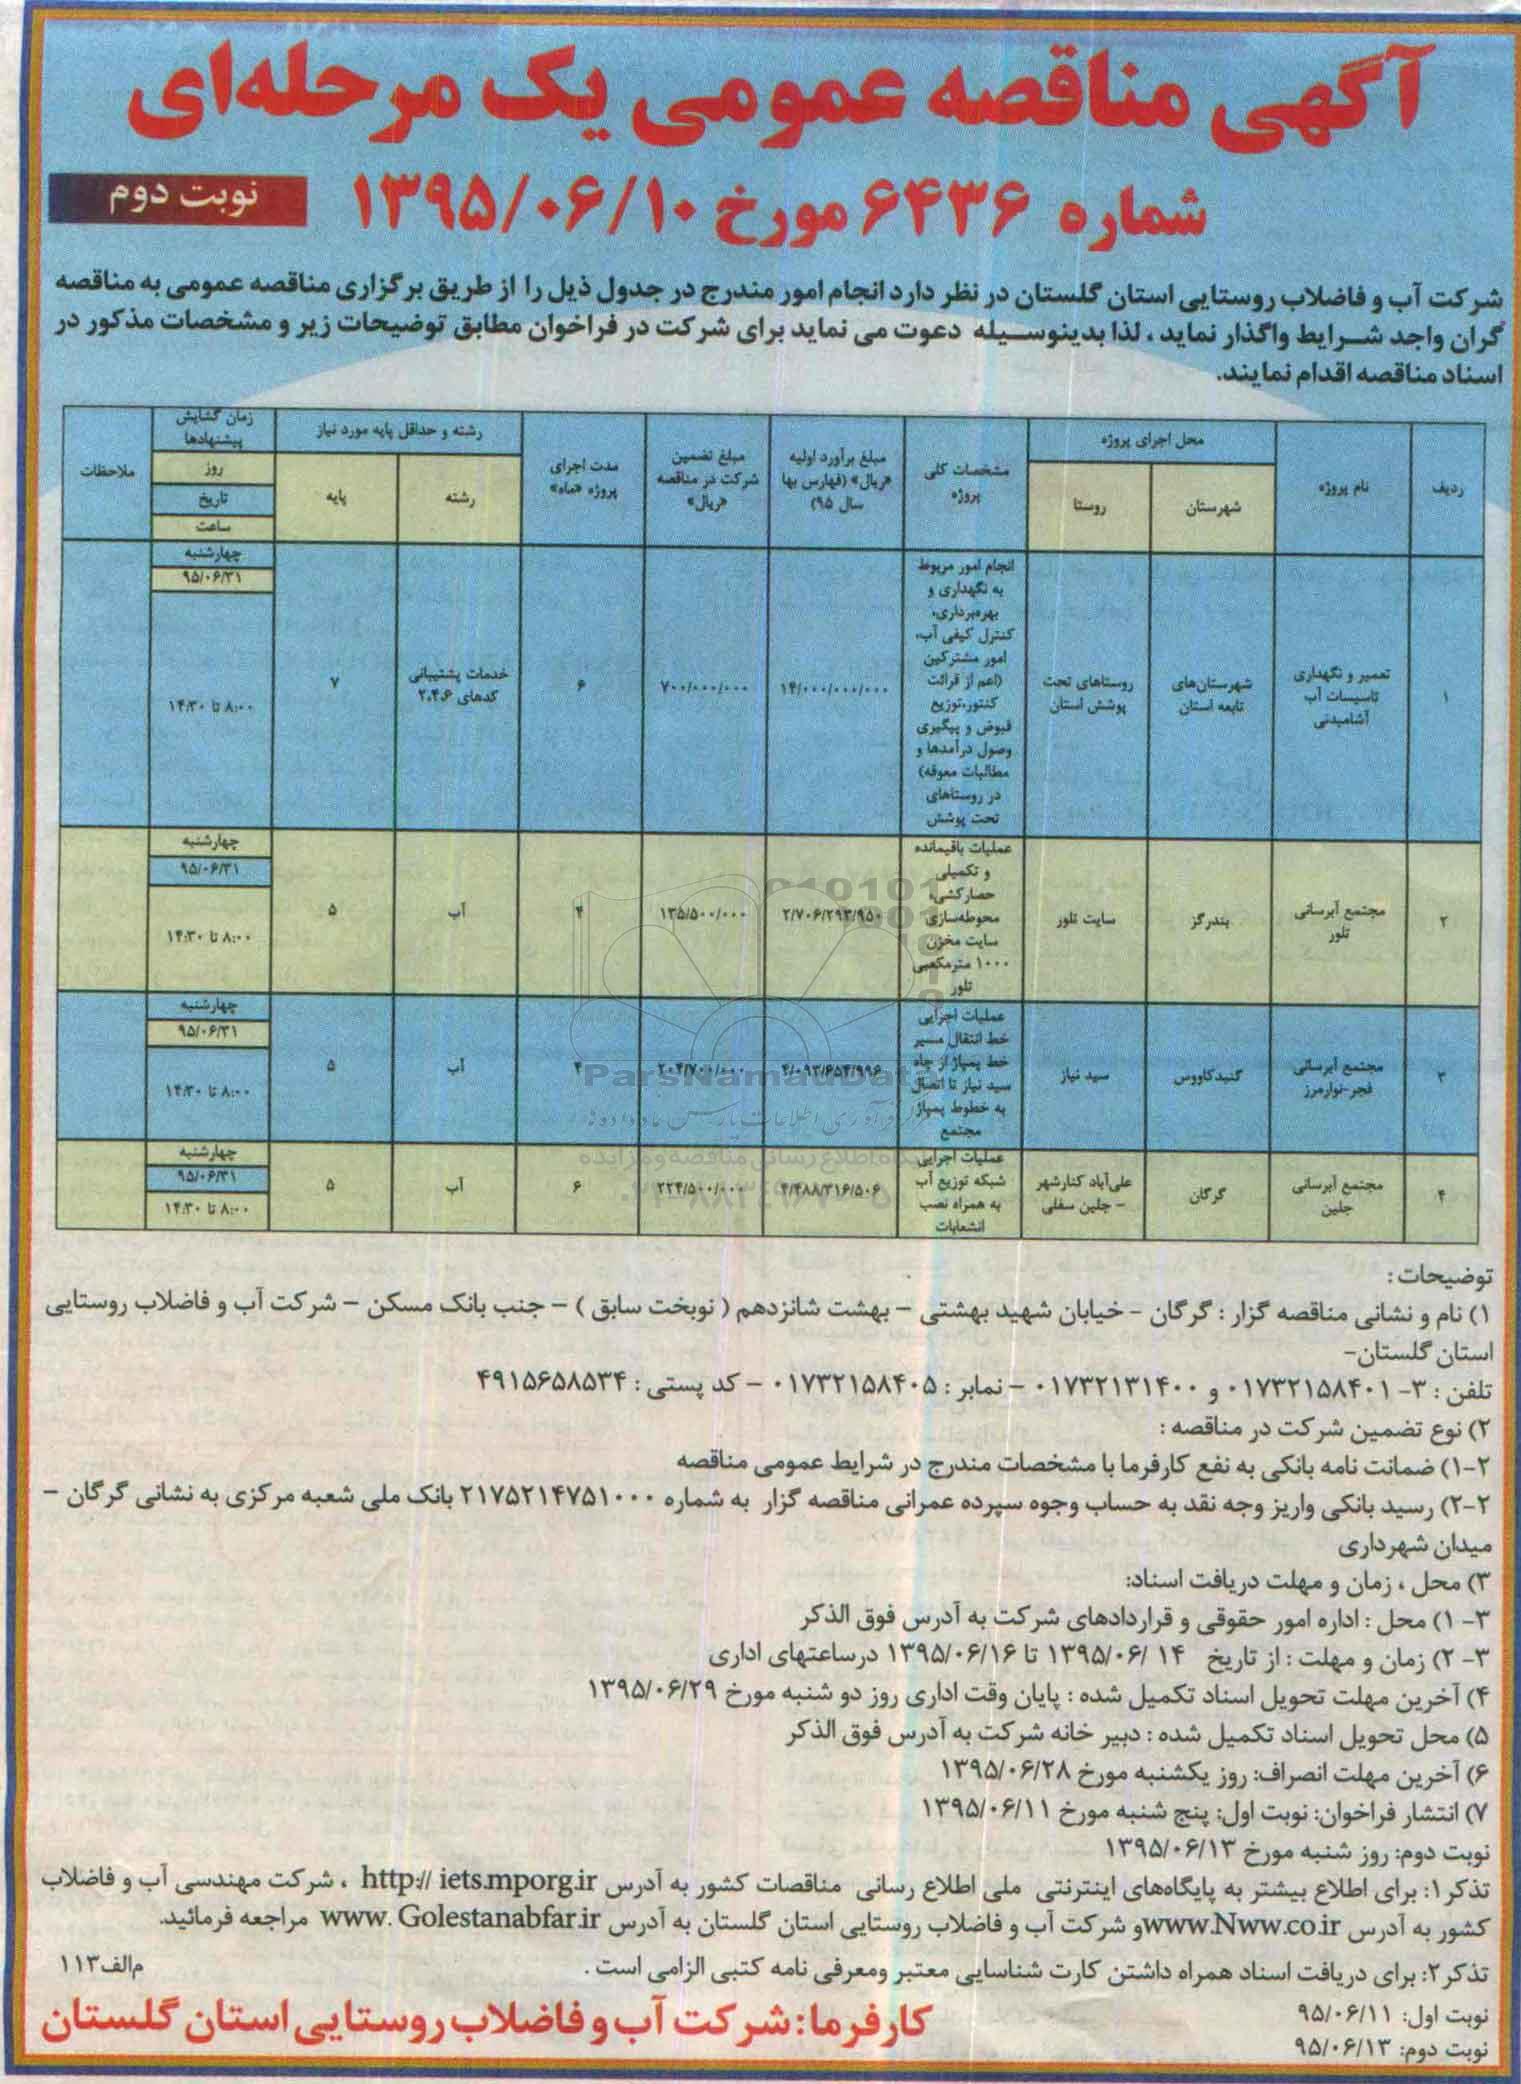 آگهی مناقصه عمومی یک مرحله‌ای
شماره ۶۴۳۶ مورخ ۱۳۹۵/۰۶/۱۰
نوبت دوم
شرکت آب و فاضلاب روستایی استان گلستان در نظر دارد انجام امور مندرج در جدول ذیل را از طریق برگزاری مناقصه عمومی به مناقصه
گران واجد شرایط واگذار نماید ، لذا بدینوسیله دعوت می نماید برای شرکت در فراخوان مطابق توضیحات زیر و مشخصات مذکور در
اسناد مناقصه اقدام نمایند.
ردیف
نام پروژه
محل اجرای پروژه
شهرستان
روستا
مشخصات کلی
پروژه
مبلغ برآورد اولیه
«ریال» (فهارس بها
سال ۹۵)
مبلغ تضمین
شرکت در مناقصه
«ریال»
مدت اجرای
پروژه «ماه»
رشته و حداقل پایه مورد نیاز
رشته
پایه
زمان گشایش
پیشنهادها
روز
تاریخ
ساعت
ملاحظات
۱
تعمیر و نگهداری
تاسیسات آب
آشامیدنی
شهرستان‌های
تابعه استان
روستاهای تحت
پوشش استان
انجام امور مربوط
به نگهداری و
بهره‌برداری،
کنترل کیفی آب،
امور مشترکین
(اعم از قرائت
کنتور،توزیع
قبوض و پیگیری
وصول درآمدها و
مطالبات معوقه)
در روستاهای
تحت پوشش
۱۴/۰۰۰/۰۰۰/۰۰۰
۷۰۰/۰۰۰/۰۰۰
۶
خدمات پشتیبانی
کدهای ۲،۴،۶
۷
چهارشنبه
۹۵/۰۶/۳۱
۸:۰۰ تا ۱۴:۳۰
۲
مجتمع آبرسانی
تلور
بندرگز
سایت تلور
عملیات باقیمانده
و تکمیلی
حصارکشی،
محوطه‌سازی
سایت مخزن
۱۰۰۰ مترمکعبی
تلور
۲/۷۰۶/۲۹۳/۹۵۰
۱۳۵/۵۰۰/۰۰۰
۴
آب
۵
چهارشنبه
۹۵/۰۶/۳۱
۸:۰۰ تا ۱۴:۳۰
۳
مجتمع آبرسانی
فجر-نوارمرز
گنبدکاووس
سید نیاز
عملیات اجرایی
خط انتقال مسیر
خط پمپاژ از چاه
سید نیاز تا اتصال
به خطوط پمپاژ
مجتمع
۴/۰۹۳/۶۵۴/۹۹۶
۲۰۴/۷۰۰/۰۰۰
۴
آب
۵
چهارشنبه
۹۵/۰۶/۳۱
۸:۰۰ تا ۱۴:۳۰
۴
مجتمع آبرسانی
جلین
گرگان
علی‌آباد کنارشهر
– جلین سفلی
عملیات اجرایی
شبکه توزیع آب
به همراه نصب
انشعابات
۴/۴۸۸/۳۱۶/۵۰۶
۲۲۴/۵۰۰/۰۰۰
۶
آب
۵
چهارشنبه
۹۵/۰۶/۳۱
۸:۰۰ تا ۱۴:۳۰
ParsNamadData
توضیحات :
۱) نام و نشانی مناقصه گزار : گرگان - خیابان شهید بهشتی – بهشت شانزدهم ( نوبخت سابق ) – جنب بانک مسکن – شرکت آب و فاضلاب روستایی
استان گلستان-
تلفن : ۳- ۰۱۷۳۲۱۵۸۴۰۱ و ۰۱۷۳۲۱۳۱۴۰۰ – نمابر : ۰۱۷۳۲۱۵۸۴۰۵ – کد پستی : ۴۹۱۵۶۵۸۵۳۴
۲) نوع تضمین شرکت در مناقصه :
۲-۱) ضمانت نامه بانکی به نفع کارفرما با مشخصات مندرج در شرایط عمومی مناقصه
۲-۲) رسید بانکی واریز وجه نقد به حساب وجوه سپرده عمرانی مناقصه گزار به شماره ۲۱۷۵۲۱۴۷۵۱۰۰۰ بانک ملی شعبه مرکزی به نشانی گرگان –
میدان شهرداری
۳) محل ، زمان و مهلت دریافت اسناد:
۳- ۱) محل : اداره امور حقوقی و قراردادهای شرکت به آدرس فوق الذکر
۳- ۲) زمان و مهلت : از تاریخ ۱۴ /۱۳۹۵/۰۶ تا ۱۳۹۵/۰۶/۱۶ درساعتهای اداری
۴) آخرین مهلت تحویل اسناد تکمیل شده : پایان وقت اداری روز دو شنبه مورخ ۱۳۹۵/۰۶/۲۹
۵) محل تحویل اسناد تکمیل شده : دبیر خانه شرکت به آدرس فوق الذکر
۶) آخرین مهلت انصراف: روز یکشنبه مورخ ۱۳۹۵/۰۶/۲۸
۷) انتشار فراخوان: نوبت اول: پنج شنبه مورخ ۱۳۹۵/۰۶/۱۱
نوبت دوم: روز شنبه مورخ ۱۳۹۵/۰۶/۱۳
تذکر۱: برای اطلاع بیشتر به پایگاه‌های اینترنتی ملی اطلاع رسانی مناقصات کشور به آدرس http:// iets.mporg.ir ، شرکت مهندسی آب و فاضلاب
کشور به آدرس www.Nww.co.ir و شرکت آب و فاضلاب روستایی استان گلستان به آدرس www. Golestanabfar.ir مراجعه فرمائید.
تذکر۲: برای دریافت اسناد همراه داشتن کارت شناسایی معتبر ومعرفی نامه کتبی الزامی است .
م‌الف۱۱۳
نوبت اول: ۹۵/۰۶/۱۱
نوبت دوم: ۹۵/۰۶/۱۳
کارفرما: شرکت آب و فاضلاب روستایی استان گلستان